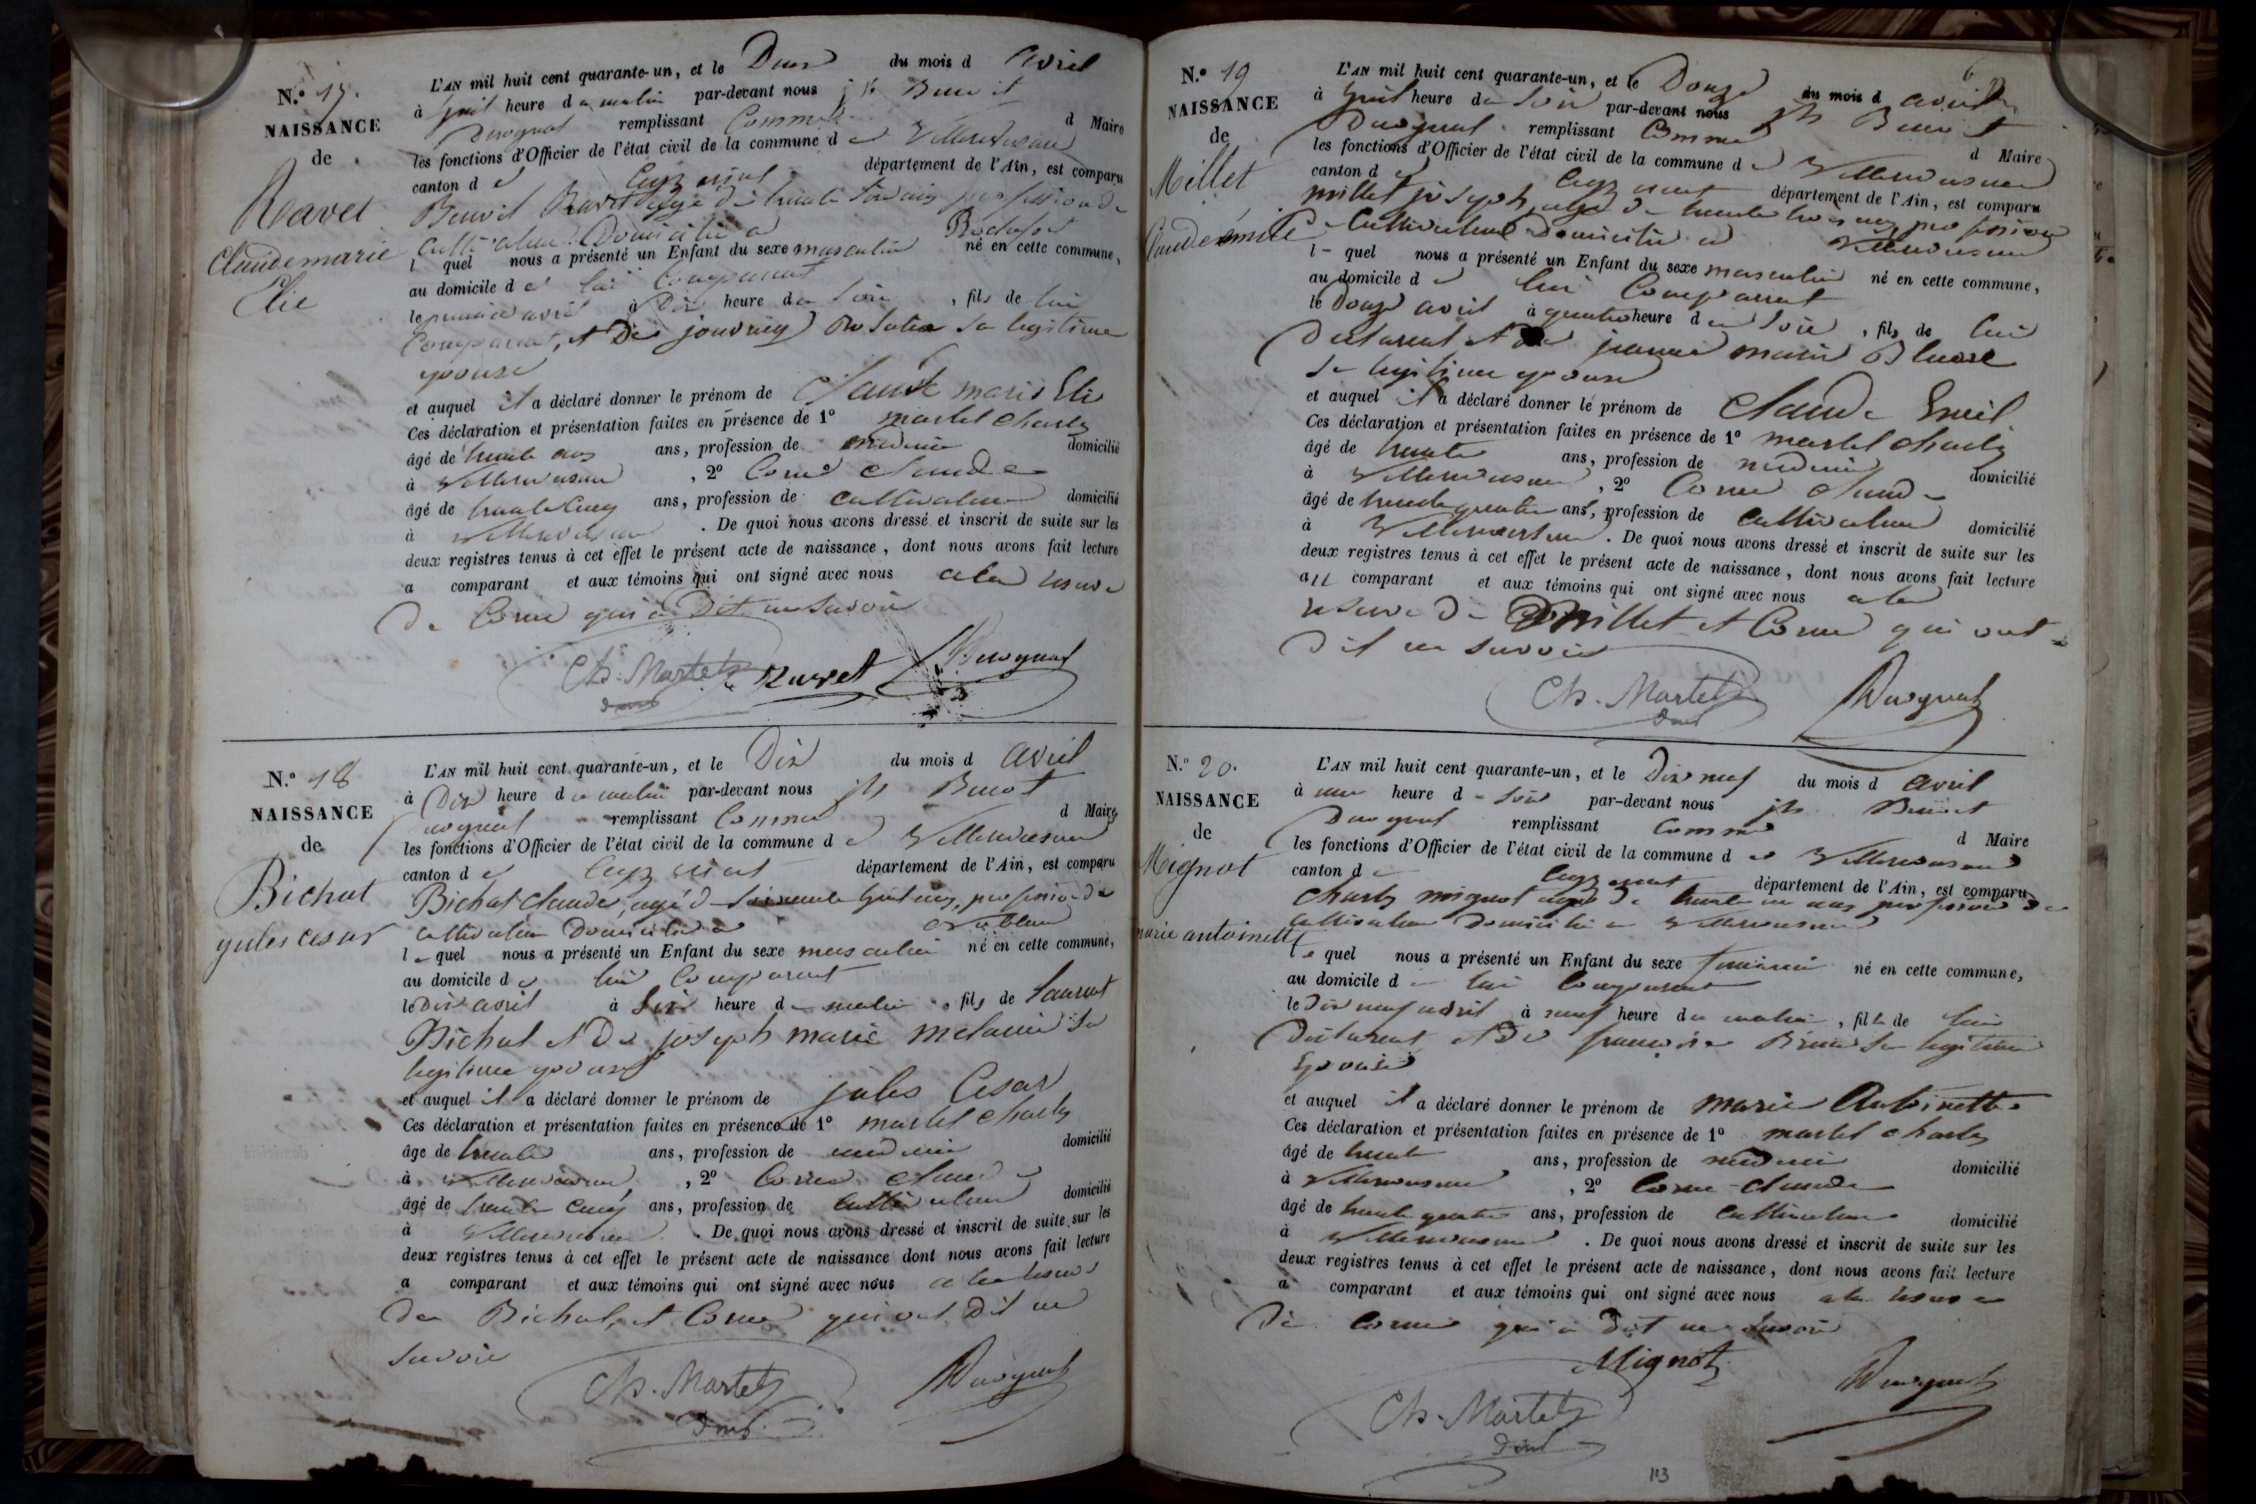 N.º 17.
NAISSANCE
de
Ravet
Claude marie
Elie
L'AN mil huit cent quarante-un, et le Deux du mois d avril
à huit heure du matin par-devant nous jh Benoit
remplissant Comme d Maire
les fonctions d'Officier de l'état civil de la commune de Villereversure
canton de Ceyzeriat département de l'Ain, est comparu
Benoit Ravet agé de trente ans, profession de
Cultivateur Domicilié à
lequel nous a présenté un Enfant du sexe masculin né en cette commune,
au domicile de lui Comparant
le premier avril à Dix heure du soir, fils de lui
Comparant, et De Rosalie sa legitime
epouse
et auquel il a déclaré donner le prénom de Claude marie Elie
Ces déclaration et présentation faites en présence de 1º martel Charles
âgé de trente ans ans, profession de médecin domicilié
à Villereversure, 2º Corne Claude
âgé de trente Cinq ans, profession de Cultivateur domicilié
à Villereversure. De quoi nous avons dressé et inscrit de suite sur les
deux registres tenus à cet effet le présent acte de naissance, dont nous avons fait lecture
a comparant et aux témoins qui ont signé avec nous a la reserve
De Corne qui a Dit ne savoir
Ch. Martel Ravet
N.º 18
NAISSANCE
de
Bichat
jules cesar
L'AN mil huit cent quarante-un, et le Dix du mois d avril
à Dix heure du matin par-devant nous jh Benoit
remplissant Comme d Maire
les fonctions d'Officier de l'état civil de la commune de Villereversure
canton de Ceyzeriat département de l'Ain, est comparu
Bichat Claude, agé de soixante huit ans, profession de
Cultivateur Domicilié à
lequel nous a présenté un Enfant du sexe masculin né en cette commune,
au domicile de lui Comparant
le Dix avril à Six heure du matin, fils de Laurent
Bichat et De joseph marie melanie sa
legitime epouse
et auquel il a déclaré donner le prénom de jules Cesar
Ces déclaration et présentation faites en présence de 1º martel Charles
âge de trente ans, profession de médecin domicilié
à Villereversure, 2º Corne Claude
âgé de trente Cinq ans, profession de Cultivateur domicilié
à Villereversure. De quoi nous avons dressé et inscrit de suite sur les
deux registres tenus à cet effet le présent acte de naissance dont nous avons fait lecture
a comparant et aux témoins qui ont signé avec nous a la reserve
De Bichat, et Corne qui ont Dit ne
savoir
Ch. Martel
N.º 19
NAISSANCE
de
Millet
Claude émile
L'AN mil huit cent quarante-un, et le Douze du mois d avril
à huit heure du soir par-devant nous jh Benoit
remplissant Comme d Maire
les fonctions d'Officier de l'état civil de la commune de Villereversure
canton de Ceyzeriat département de l'Ain, est comparu
millet joseph, agé de trente trois ans, profession
de Cultivateur Domicilié à Villereversure
lequel nous a présenté un Enfant du sexe masculin né en cette commune,
au domicile de lui Comparant
le Douze avril à quatre heure du soir, fils de lui
Declarant et De jeanne marie
sa legitime epouse
et auquel il a déclaré donner le prénom de Claude Emil
Ces déclaration et présentation faites en présence de 1º martel Charles
âgé de trente ans, profession de médecin domicilié
à Villereversure, 2º Corne Claude
âgé de trente quatre ans, profession de Cultivateur domicilié
à Villereversure. De quoi nous avons dressé et inscrit de suite sur les
deux registres tenus à cet effet le présent acte de naissance, dont nous avons fait lecture
au comparant et aux témoins qui ont signé avec nous a la
reserve De Millet et Corne qui ont
Dit ne savoir
Ch. Martel
N.º 20.
NAISSANCE
de
Mignot
marie antoinette
L'AN mil huit cent quarante-un, et le Dix neuf du mois d avril
à une heure du soir par-devant nous jh Benoit
remplissant Comme d Maire
les fonctions d'Officier de l'état civil de la commune de Villereversure
canton de Ceyzeriat département de l'Ain, est comparu
Charles mignot agé de trente un ans profession de
Cultivateur Domicilié a Villereversure
lequel nous a présenté un Enfant du sexe feminin né en cette commune,
au domicile de lui Comparant
le Dix neuf avril à neuf heure du matin, fille de lui
Declarant et De françoise sa legitime
Epouse
et auquel il a déclaré donner le prénom de marie Antoinette
Ces déclaration et présentation faites en présence de 1º martel Charles
âgé de trente ans, profession de médecin domicilié
à Villereversure, 2º Corne Claude
âgé de trente quatre ans, profession de Cultivateur domicilié
à Villereversure. De quoi nous avons dressé et inscrit de suite sur les
deux registres tenus à cet effet le présent acte de naissance, dont nous avons fait lecture
a comparant et aux témoins qui ont signé avec nous a la reserve
De Corne qui a Dit ne savoir
Mignot
Ch. Martel
113